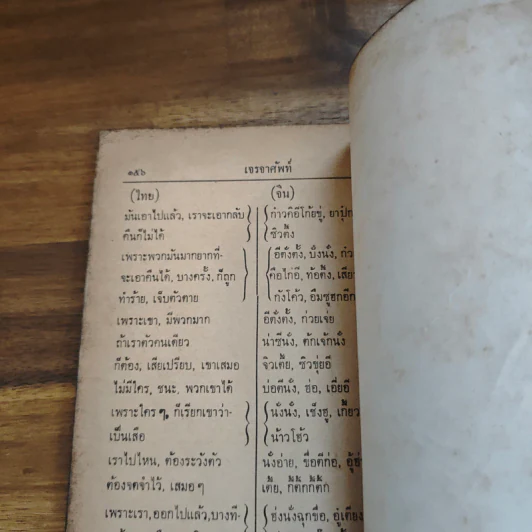 ๑๕๖ เจรจาศัพท์
(ไทย) (จีน)
มันเอาไปแล้ว, เราจะเอากลับ ก๋าวคิอีโก้ยขู่, ยาปุ๋ย
คืนก็ไม่ได้ ชิวตึ้ง
เพราะพวกมันมากยากที่- อีตั้งตั้ง, บั้งนั้ง,
จะเอาคืนได้, บางครั้ง, ก็ถูก คือไก่อี, ท้อตึ้ง,
ทำร้าย, เจ็บตัวตาย กังโค้ว, อึมชูฮกอีก
เพราะเขา, มีพวกมาก อีตั้งตั้ง, ก่วยเจ่ย
ถ้าเราตัวคนเดียว น่าซีนั้ง, ตักเจ้กนั้ง
ก็ต้อง, เสียเปรียบ, เขาเสมอ จิวเตีย, ชิวขุ่ยอี
ไม่มีใคร, ชนะ, พวกเขาได้ บ่อตีนั้ง, ฮ่อ, เอี่ยอี
เพราะใคร ๆ, ก็เรียกเขาว่า- นั้งนั้ง, เช็งฮู,
เป็นเสือ น้าวโฮ้ว
เราไปไหน, ต้องระวังตัว นั้งอ่าย, ขื่อตีก่อ,
ต้องจดจำไว้, เสมอ ๆ เตีย, กี้ตักกี้ตัก
เพราะเรา, ออกไปแล้ว, บางที- ฮ่งนั้งฉุกขื่อ,